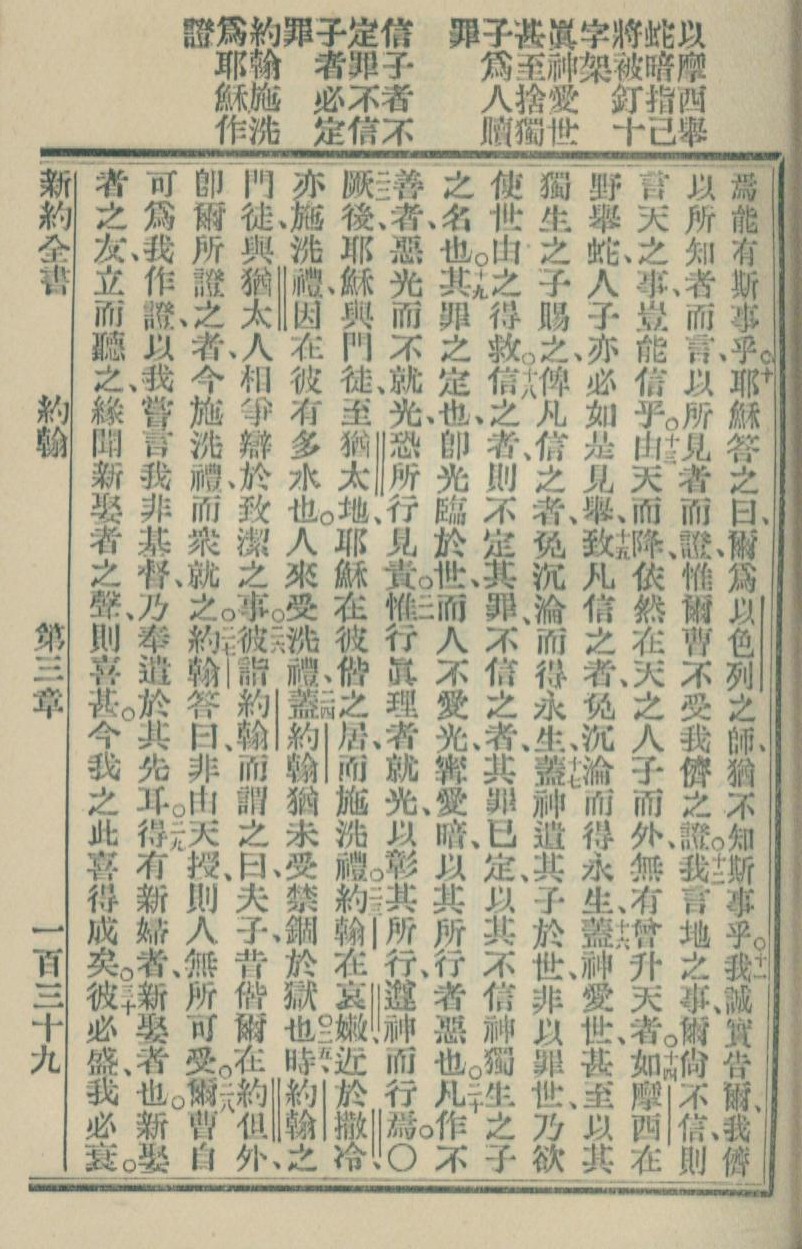 以摩西舉
蛇暗指己
將被釘十
字架
眞神愛世
甚至捨獨
子爲人贖
罪
信子者不
定罪不信
子者必定
罪
約翰施洗
爲耶穌作
證
焉能有斯事乎。○十耶穌答之曰、爾爲以色列之師、猶不知斯事乎。○十一我誠實告爾、我儕
以所知者而言、以所見者而證、惟爾曹不受我儕之證。○十二我言地之事、爾尙不信、則
言天之事、豈能信乎。○十三由天而降、依然在天之人子而外、無有曾升天者。○十四如摩西在
野舉蛇、人子亦必如是見舉、十五致凡信之者、免沉淪而得永生、十六蓋神愛世、甚至以其
獨生之子賜之、俾凡信之者、免沉淪而得永生、十七蓋神遣其子於世、非以罪世、乃欲
使世由之得救。○十八信之者、則不定其罪、不信之者、其罪已定、以其不信神獨生之子
之名也。○十九其罪之定也、卽光臨於世、而人不愛光、寗愛暗、以其所行者惡也。○二十凡作不
善者、惡光而不就光、恐所行見責。○二一惟行眞理者就光、以彰其所行、遵神而行焉。○
二二厥後、耶穌與門徒、至猶太地、耶穌在彼偕之居、而施洗禮。○二三約翰在哀嫩、近於撒冷、
亦施洗禮、因在彼有多水也。人來受洗禮、二四蓋約翰猶未受禁錮於獄也。○二五時、約翰之
門徒、與猶太人相爭辯於致潔之事。○二六彼詣約翰而謂之曰、夫子、昔偕爾在約但外、
卽爾所證之者、今施洗禮、而衆就之。○二七約翰答曰、非由天授、則人無所可受。○二八爾曹自
可爲我作證、以我嘗言我非基督、乃奉遣於其先耳。○二九得有新婦者、新娶者也。新娶
者之友、立而聽之、緣聞新娶者之聲、則喜甚。今我之此喜得成矣。○三十彼必盛、我必衰。
新約全書　約翰　第三章　一百三十九